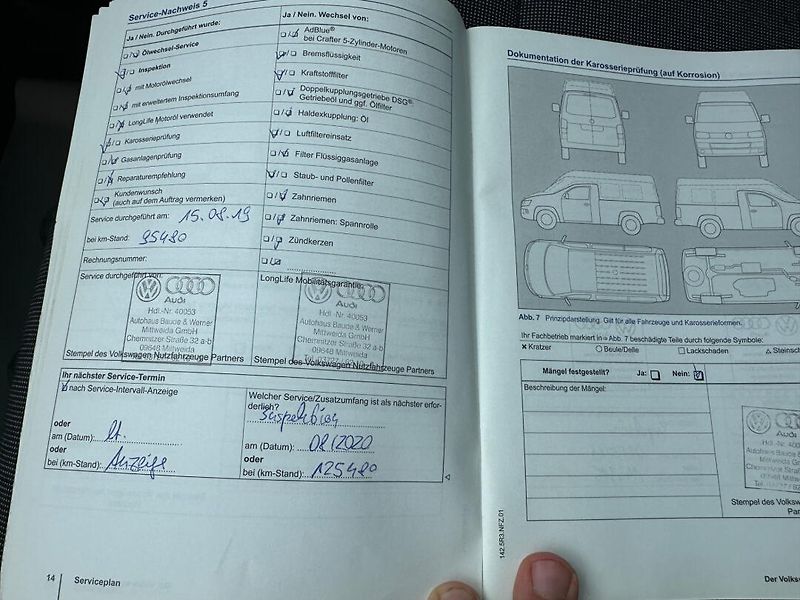 Service-Nachweis 5
Ja / Nein. Durchgeführt wurde:
Ölwechsel-Service
Inspektion
mit Motorölwechsel
mit erweitertem Inspektionsumfang
LongLife Motoröl verwendet
Karosserieprüfung
Gasanlagenprüfung
Reparaturempfehlung
Kundenwunsch
(auch auf dem Auftrag vermerken)
Service durchgeführt am: 15.08.19
bei km-Stand: 95480
Rechnungsnummer:
Ja / Nein. Wechsel von:
AdBlue®
bei Crafter 5-Zylinder-Motoren
Bremsflüssigkeit
Kraftstofffilter
Doppelkupplungsgetriebe DSG®
Getriebeöl und ggf. Ölfilter
Haldexkupplung: Öl
Luftfiltereinsatz
Filter Flüssiggasanlage
Staub- und Pollenfilter
Zahnriemen
Zahnriemen: Spannrolle
Zündkerzen
Service durchgeführt von:
Audi
Hdl.-Nr. 40053
Autohaus Baude & Werner
Mittweida GmbH
Chemnitzer Straße 32 a-b
09648 Mittweida
Stempel des Volkswagen Nutzfahrzeuge Partners
LongLife Mobilitätsgarantie:
Audi
Hdl.-Nr. 40053
Autohaus Baude & Werner
Mittweida GmbH
Chemnitzer Straße 32 a-b
09648 Mittweida
Stempel des Volkswagen Nutzfahrzeuge Partners
Ihr nächster Service-Termin
nach Service-Intervall-Anzeige
oder
am (Datum): lt.
oder
bei (km-Stand): Anzeige
Welcher Service/Zusatzumfang ist als nächster erfor-
derlich?
Inspektion
am (Datum): 08/2020
oder
bei (km-Stand): 125480
14
Serviceplan
Dokumentation der Karosserieprüfung (auf Korrosion)
Abb. 7 Prinzipdarstellung. Gilt für alle Fahrzeuge und Karosserieformen.
Ihr Fachbetrieb markiert in Abb. 7 beschädigte Teile durch folgende Symbole:
Kratzer
Beule/Delle
Lackschaden
Mängel festgestellt? Ja: Nein:
Beschreibung der Mängel:
Audi
Hdl.-Nr.
Autohaus Baud
Mittweida G
Chemnitzer Str
09648 Mittw
Stempel des Volksw
Par
142.5R3.NFZ.01
Der Volks